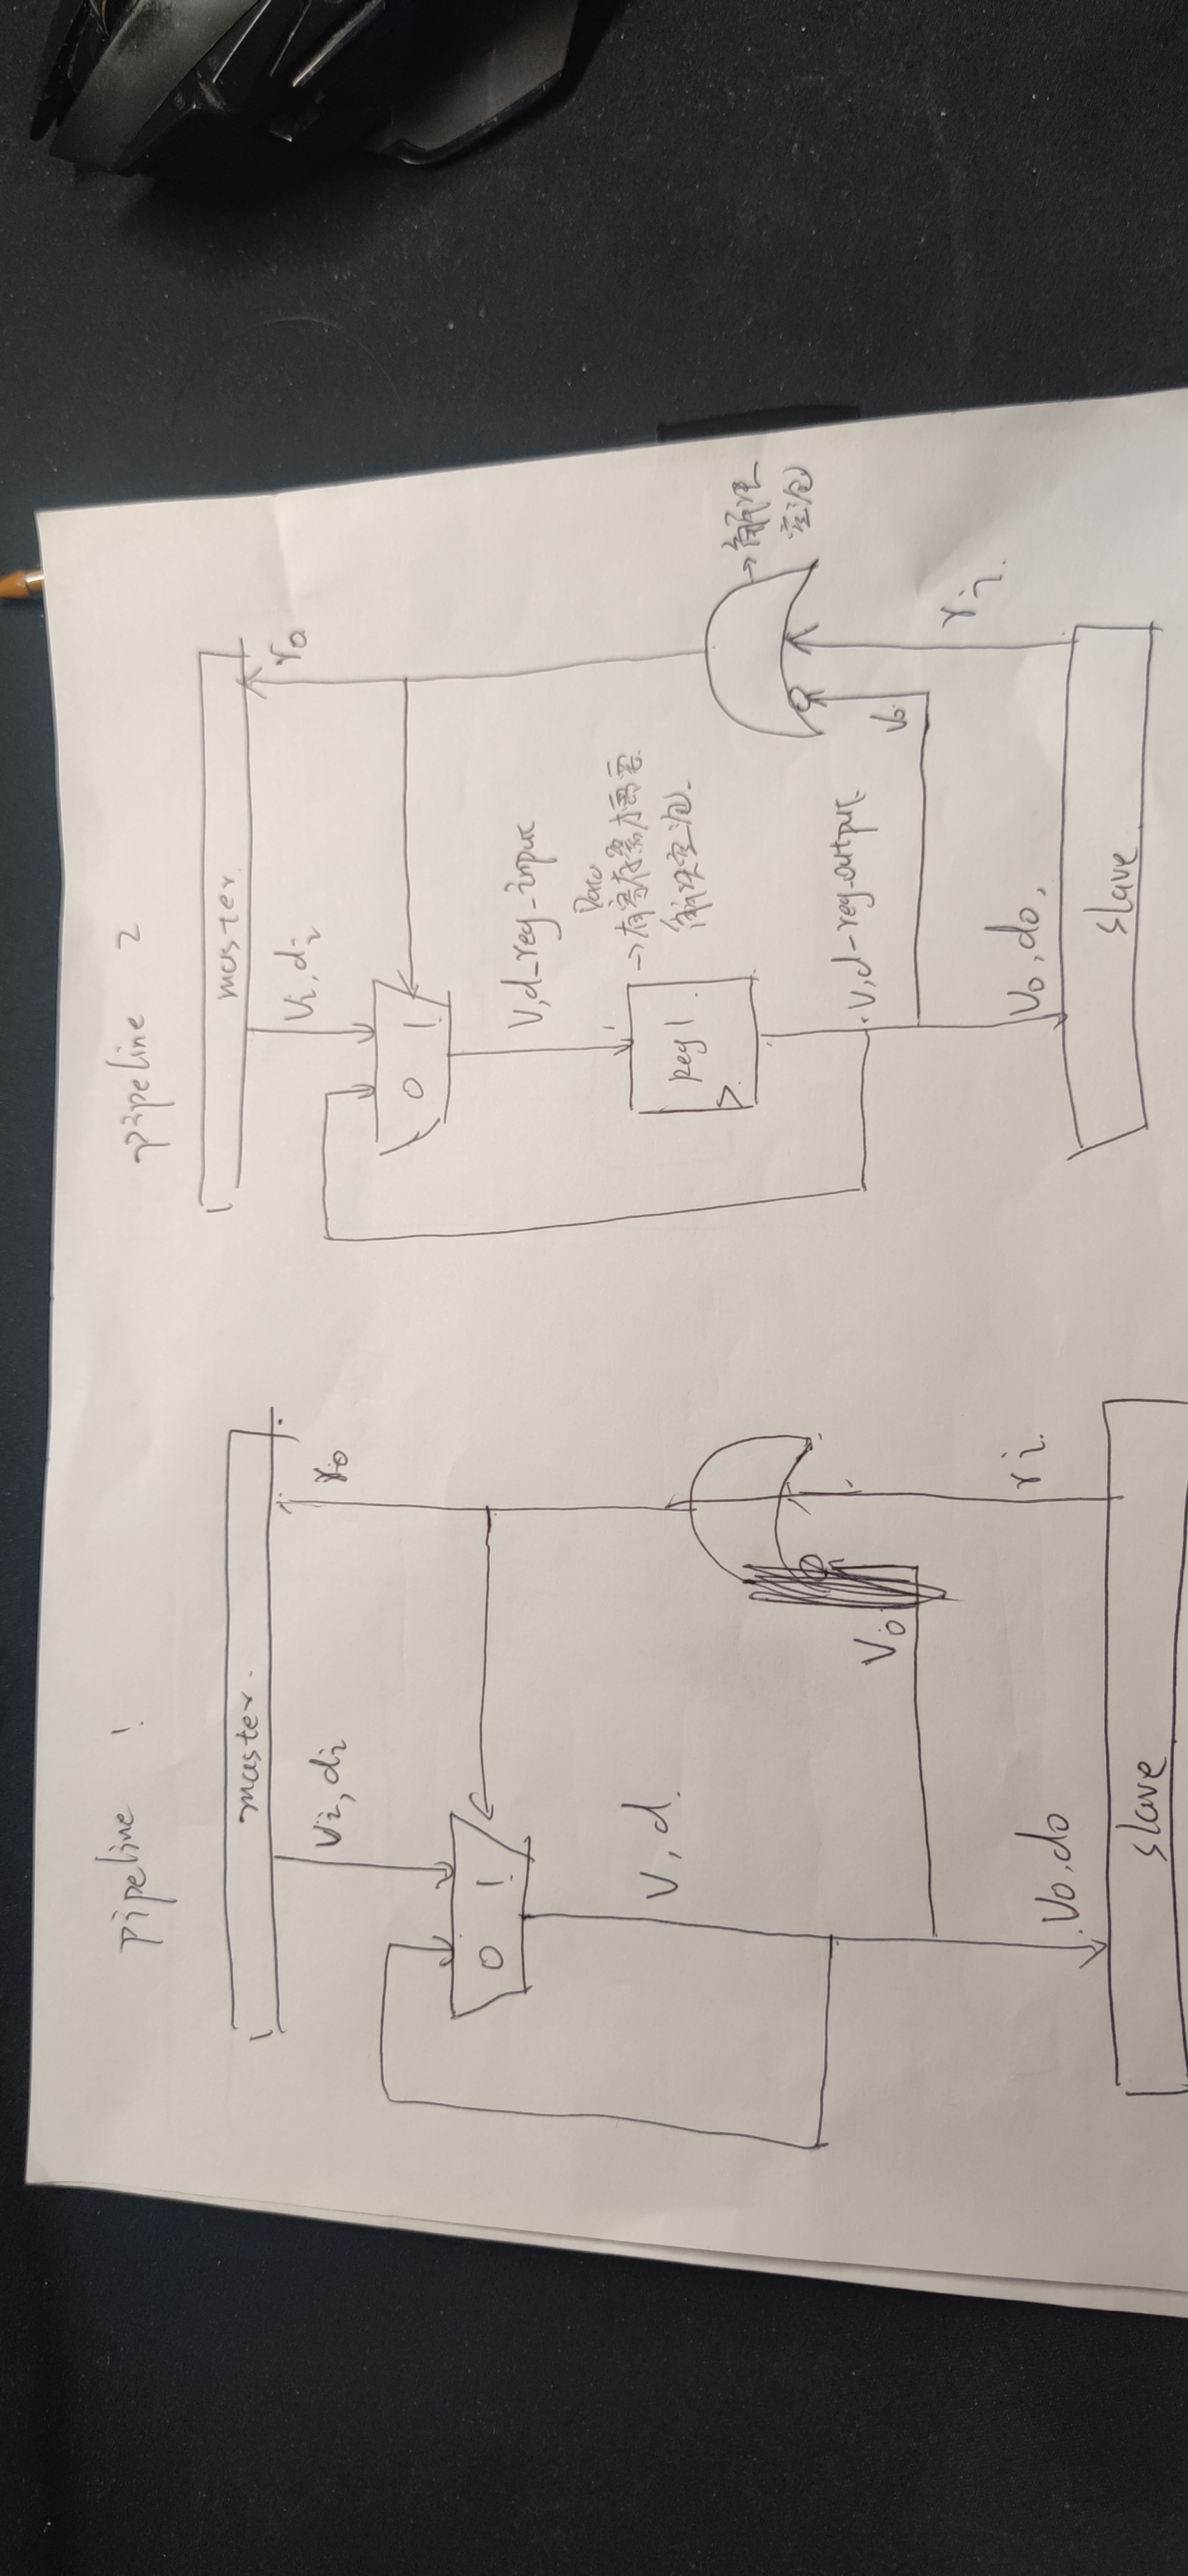 pipeline 1
master.
Vi, di
ro
0 1
V, d.
Vo
Vo, do
ri
slave
pipeline 2
master.
Vi, di
ro
0 1
V, d_reg_input
Data
→有寄存器才需要
解决空泡.
reg 1
V, d-reg-output
Vo
→解决
空泡
ri
Vo, do,
slave